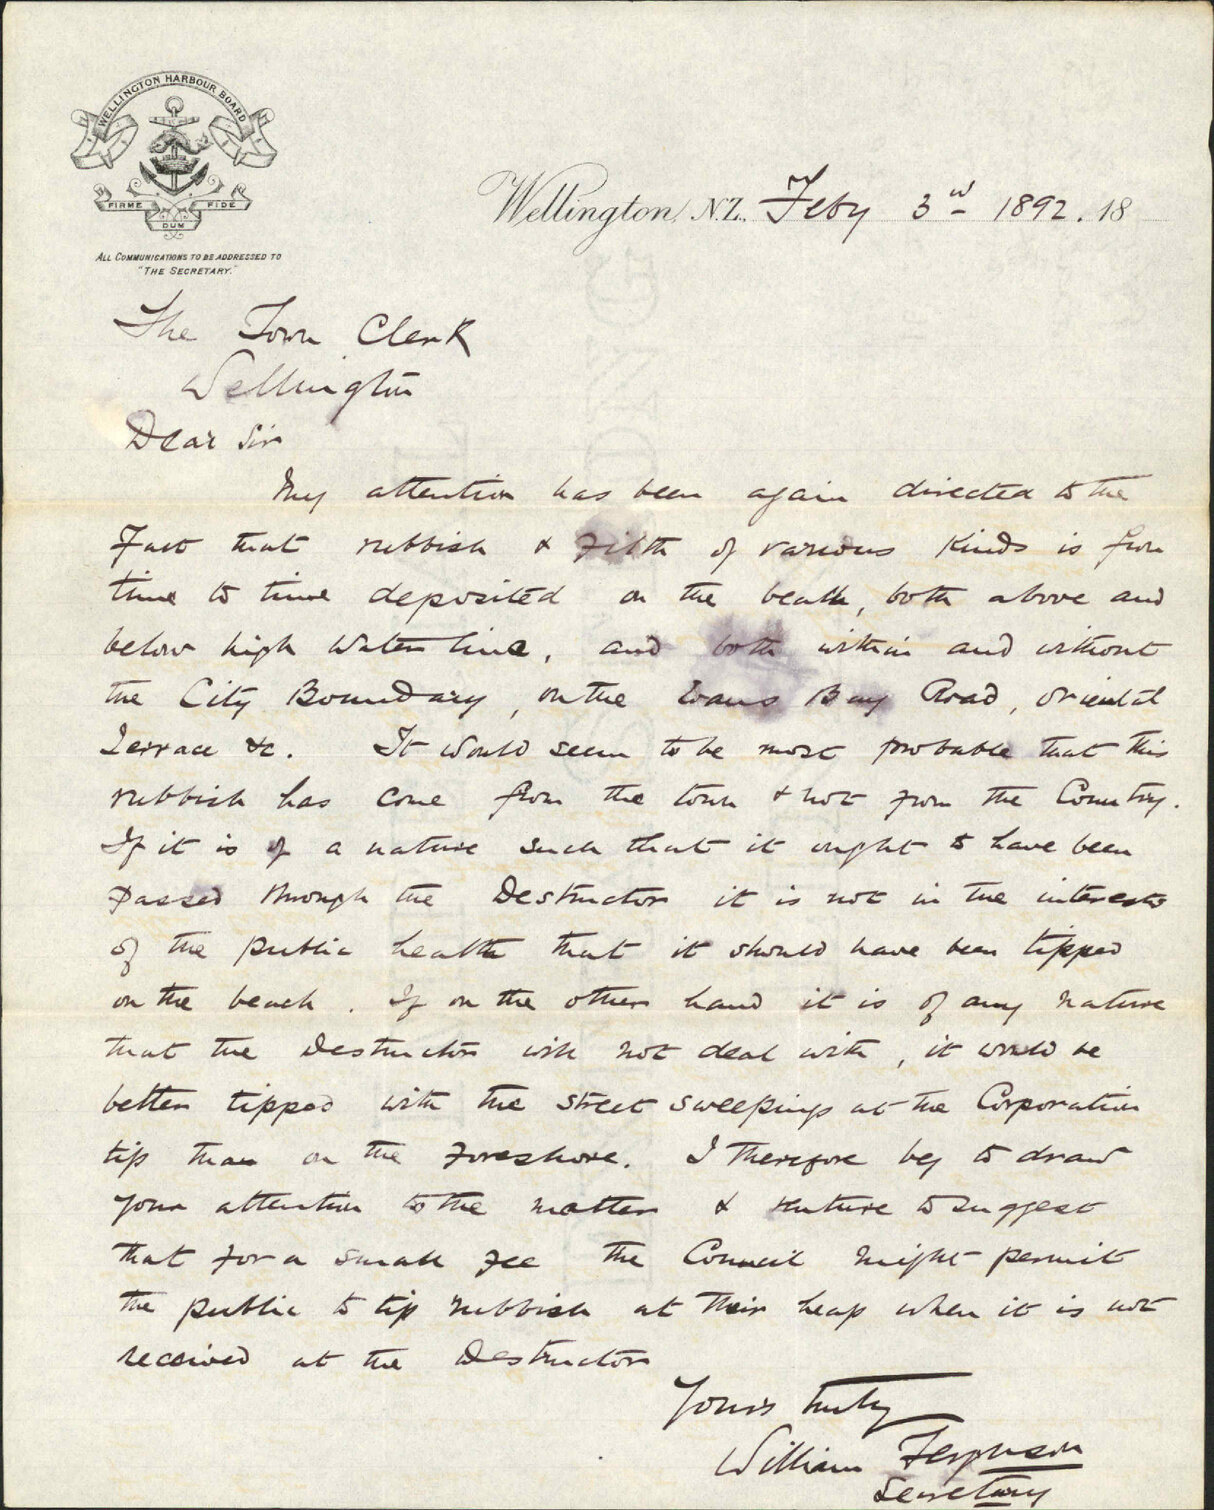 WELLINGTON HARBOUR BOARD
FIRME DUM FIDE
ALL COMMUNICATIONS TO BE ADDRESSED TO
"THE SECRETARY."
Wellington, N.Z., Feby 3rd 1892. 18
The Town Clerk
Wellington
Dear Sir
My attention has been again directed to the
Fact that rubbish & Filth of various Kinds is from
time to time deposited on the beach, both above and
below high Water line, and both within and without
the City Boundary, on the Evans Bay Road, Oriental
Terrace &c. It would seem to be most probable that this
rubbish has come from the town & not from the Country.
If it is of a nature such that it ought to have been
Passed through the Destructor it is not in the interests
of the public health that it should have been tipped
on the beach. If on the other hand it is of any nature
that the Destructor will not deal with, it would be
better tipped with the street sweepings at the Corporation
tip than on the Foreshore. I therefore beg to draw
your attention to the matter & venture to suggest
that for a small fee the Council might permit
the public to tip rubbish at their heap when it is not
received at the Destructor
Yours truly
William Ferguson
Secretary